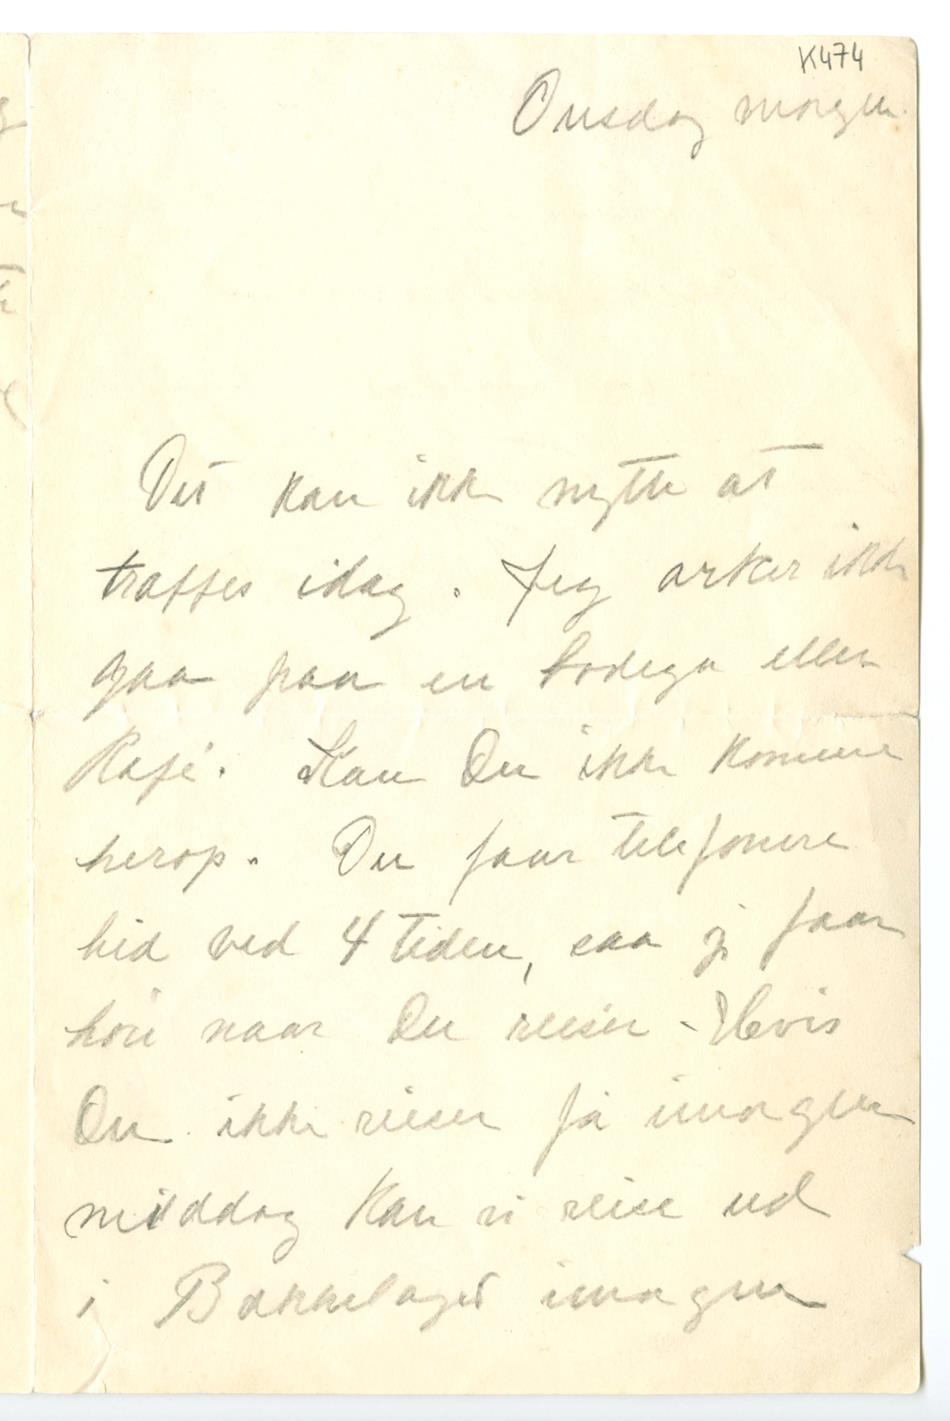 K474
Onsdag morgen
Det kan ikke nytte at
træffes idag. Jeg orker ikke
gaa paa en Bodega eller
Kafé. Kan Du ikke komme
herop. Du faar telefonere
hid ved 4 tiden, saa jeg faar
høre naar Du reiser - Hvis
Du ikke reiser før imorgen
middag kan vi reise ud
i Bakkelaget imorgen